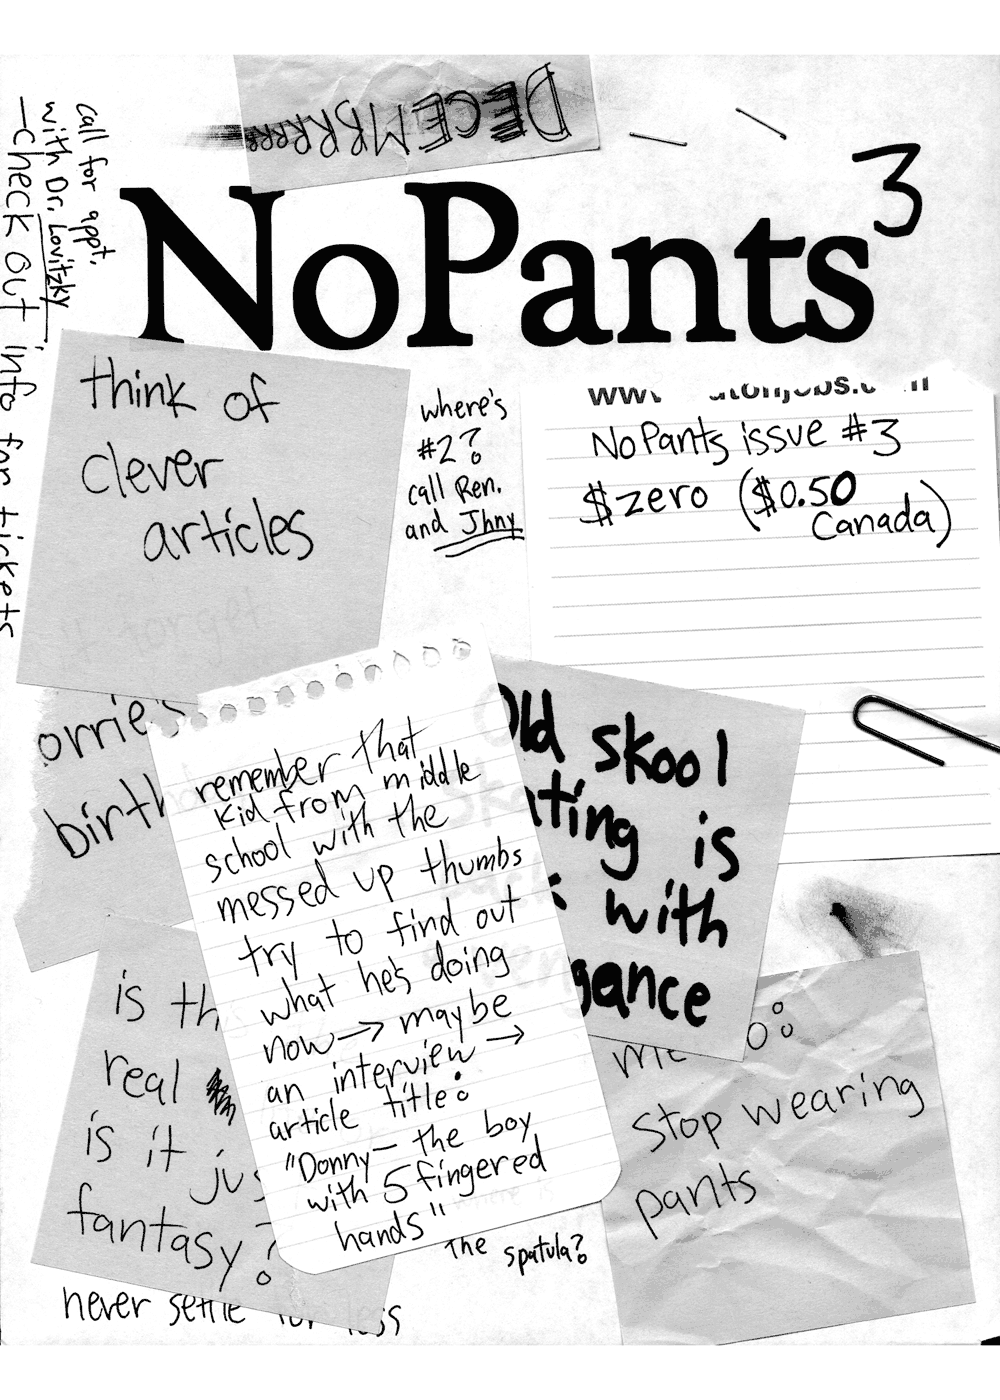 DECEMBRRRR
NoPants³
call for appt.
with Dr. Lovitzky
—check out info for tickets
think of
clever
articles
forget
where's
#2?
call Ren.
and Jhny
NoPants issue #3
$zero ($0.50
Canada)
orrie's
birth
remember that
kid from middle
school with the
messed up thumbs
try to find out
what he's doing
now → maybe
an interview →
article title:
"Donny – the boy
with 5 fingered
hands"
Old skool
ting is
with
gance
is th
real
is it jus
fantasy?
never settle for less
the spatula?
stop wearing
pants